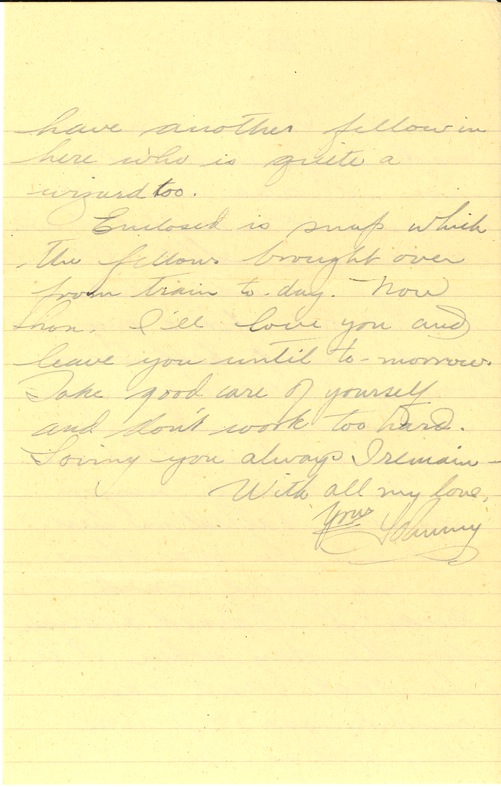 have another fellow in
here who is quite a
wizard too.
Enclosed is snap which
the fellows brought over
from train to-day. Now
hon. I'll love you and
leave you until to-morrow
Take good care of yourself
and don't work too hard.
Loving you always I remain -
With all my love,
Your